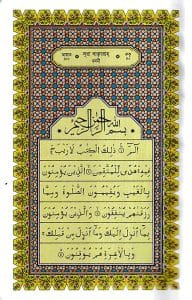 بِسْمِ اللهِ الرَّحْمٰنِ الرَّحِيْمِ
الٓمّٓ ۚ ذٰلِكَ الْكِتٰبُ لَا رَيْبَ ۛ
فِيْهِ ۛ هُدًى لِّلْمُتَّقِيْنَ ۙ الَّذِيْنَ يُؤْمِنُوْنَ
بِالْغَيْبِ وَيُقِيْمُوْنَ الصَّلٰوةَ وَمِمَّا
رَزَقْنٰهُمْ يُنْفِقُوْنَ ۙ وَالَّذِيْنَ يُؤْمِنُوْنَ
بِمَآ اُنْزِلَ اِلَيْكَ وَمَآ اُنْزِلَ مِنْ قَبْلِكَ ۚ
وَبِالْاٰخِرَةِ هُمْ يُوْقِنُوْنَ